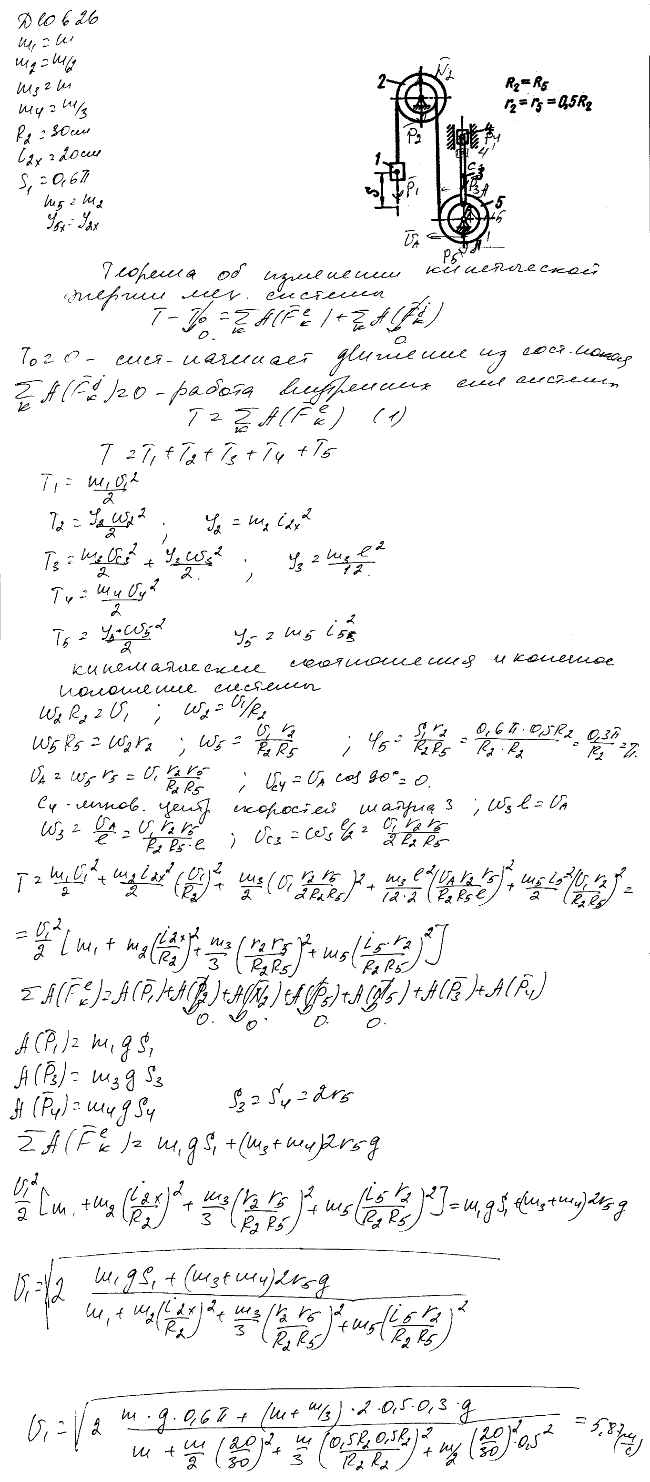 Д10 б 26
m₁ = m
m₂ = m/2
m₃ = m
m₄ = m/3
R₂ = 30 см
i₂ₓ = 20 см
S₁ = 0,6π
m₅ = m₂
J₅ₓ = J₂ₓ
2 N̄₂ P̄₂ 1 P̄₁ S
R₂ = R₅
r₂ = r₅ = 0,5R₂
4 P̄₄ C 3 P̄₃ A 5 ῡ_A P̄₅
Теорема об изменении кинетической
энергии мех. системы
T − T₀ = Σ A(F̄ₖᵉ) + Σ A(F̄ₖⁱ)
0. 0
T₀ = 0 - сист. начинает движение из сост. покоя
Σ A(F̄ₖⁱ) = 0 - работа внутренних сил системы
T = Σ A(F̄ₖᵉ) (1)
T = T₁ + T₂ + T₃ + T₄ + T₅
T₁ = m₁υ₁²/2
T₂ = J₂ω₂²/2 ; J₂ = m₂ i₂ₓ²
T₃ = m₃υ_C3²/2 + J₃ω₃²/2 ; J₃ = m₃l²/12
T₄ = m₄υ₄²/2
T₅ = J₅·ω₅²/2 J₅ = m₅ i₅²
кинематические соотношения и конечное
положение системы
ω₂R₂ = υ₁ ; ω₂ = υ₁/R₂
ω₅R₅ = ω₂r₂ ; ω₅ = υ₁r₂/R₂R₅ ; φ₅ = S₁r₂/R₂R₅ = 0,6π·0,5R₂/R₂·R₂ = 0,3π/R₂ = π.
υ_A = ω₅r₅ = υ₁ r₂r₅/R₂R₅ ; υ_C4 = υ_A cos 90° = 0.
C₄ - мгнов. центр скоростей шатуна 3 ; ω₃l = υ_A
ω₃ = υ_A/l = υ₁r₂r₅/R₂R₅·l ; υ_C3 = ω₃ l/2 = υ₁r₂r₅/2R₂R₅
T = m₁υ₁²/2 + m₂i₂ₓ²/2 (υ₁/R₂)² + m₃/2 (υ₁ r₂r₅/2R₂R₅)² + m₃l²/12·2 (υ_A r₂r₅/R₂R₅l)² + m₅i₅²/2 (υ₁r₂/R₂R₅)² =
= υ₁²/2 [m₁ + m₂(i₂ₓ/R₂)² + m₃/3 (r₂r₅/R₂R₅)² + m₅(i₅·r₂/R₂R₅)²]
ΣA(F̄ₖᵉ) = A(P̄₁) + A(P̄₂) + A(N̄₂) + A(P̄₅) + A(N̄₅) + A(P̄₃) + A(P̄₄)
0. 0. 0. 0.
A(P̄₁) = m₁gS₁
A(P̄₃) = m₃gS₃
A(P̄₄) = m₄gS₄ S₃ = S₄ = 2r₅
ΣA(F̄ₖᵉ) = m₁gS₁ + (m₃+m₄)2r₅g
υ₁²/2 [m₁ + m₂(i₂ₓ/R₂)² + m₃/3 (r₂r₅/R₂R₅)² + m₅(i₅r₂/R₂R₅)²] = m₁gS₁ + (m₃+m₄)2r₅g
υ₁ = √(2 (m₁gS₁ + (m₃+m₄)2r₅g)/(m₁ + m₂(i₂ₓ/R₂)² + m₃/3 (r₂r₅/R₂R₅)² + m₅(i₅r₂/R₂R₅)²))
υ₁ = √(2 (m·g·0,6π + (m + m/3)·2·0,5·0,3·g)/(m + m/2 (20/30)² + m/3 (0,5R₂0,5R₂/R₂R₂)² + m/2 (20/30)²·0,5²)) = 5,87 (м/с)